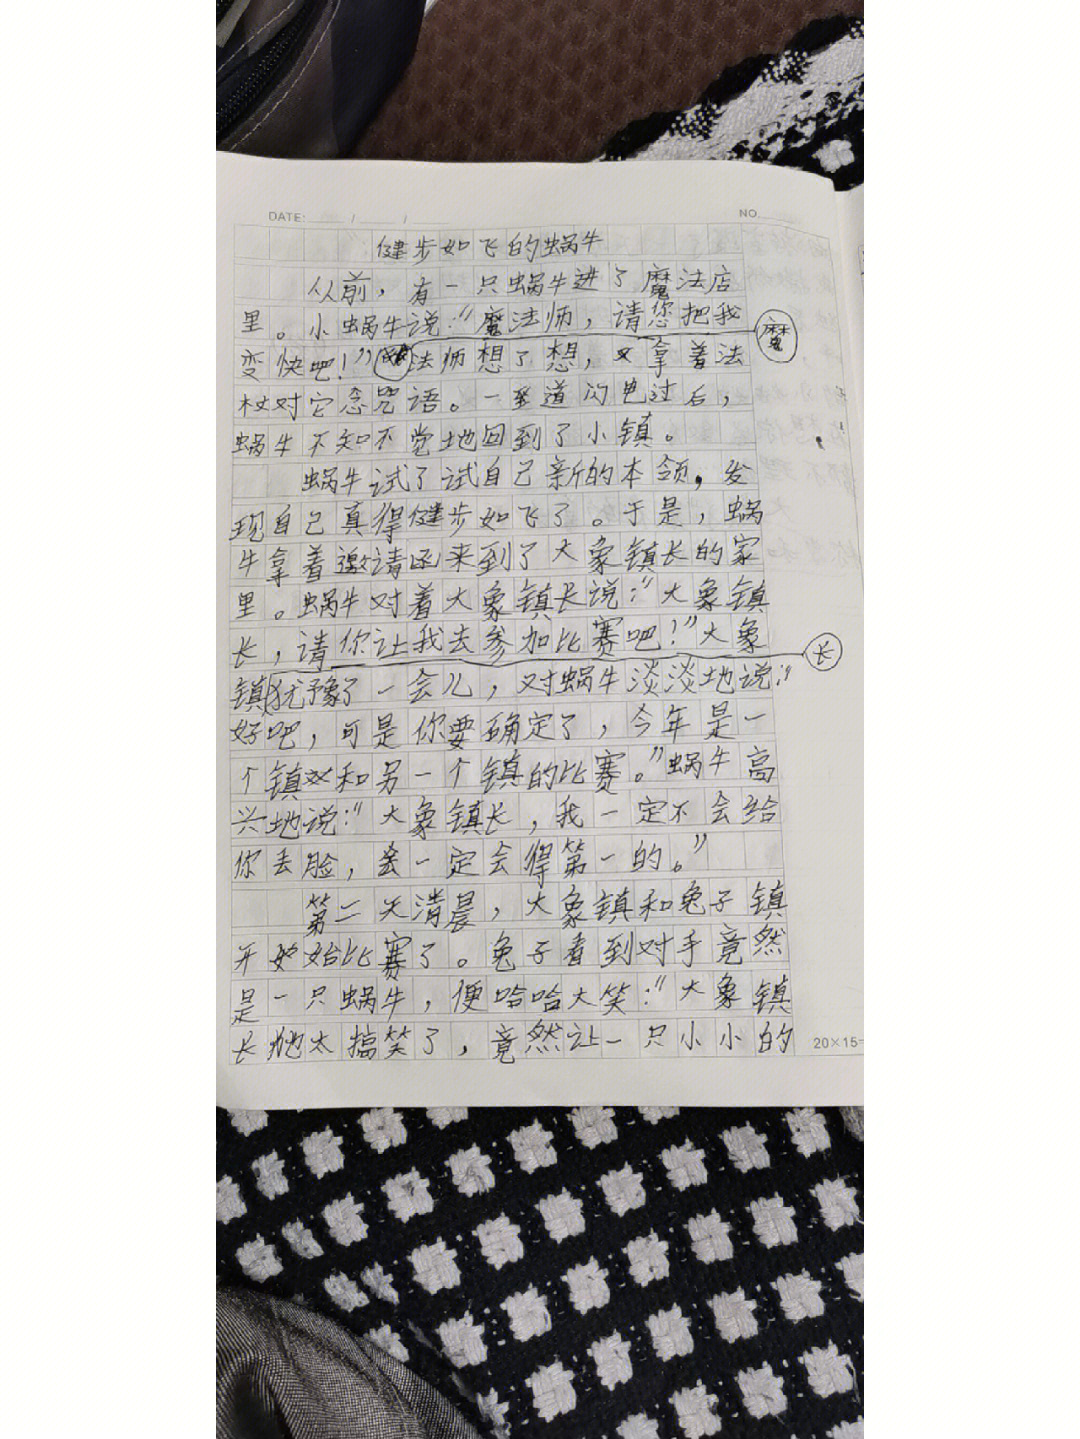 DATE: / /
NO.
健步如飞的蜗牛
从前，有一只蜗牛进了魔法店
里。小蜗牛说："魔法师，请您把我
变快吧！"魔法师想了想，又拿着法
杖对它念咒语。一道闪电过后，
蜗牛不知不觉地回到了小镇。
蜗牛试了试自己新的本领，发
现自己真得健步如飞了。于是，蜗
牛拿着邀请函来到了大象镇长的家
里。蜗牛对着大象镇长说："大象镇
长，请你让我去参加比赛吧！"大象
镇长犹豫了一会儿，对蜗牛淡淡地说："
好吧，可是你要确定了，今年是一
个镇和另一个镇的比赛。"蜗牛高
兴地说："大象镇长，我一定不会给
你丢脸，一定会得第一的。"
第二天清晨，大象镇和兔子镇
开始比赛了。兔子看到对手竟然
是一只蜗牛，便哈哈大笑："大象镇
长他太搞笑了，竟然让一只小小的
20×15=